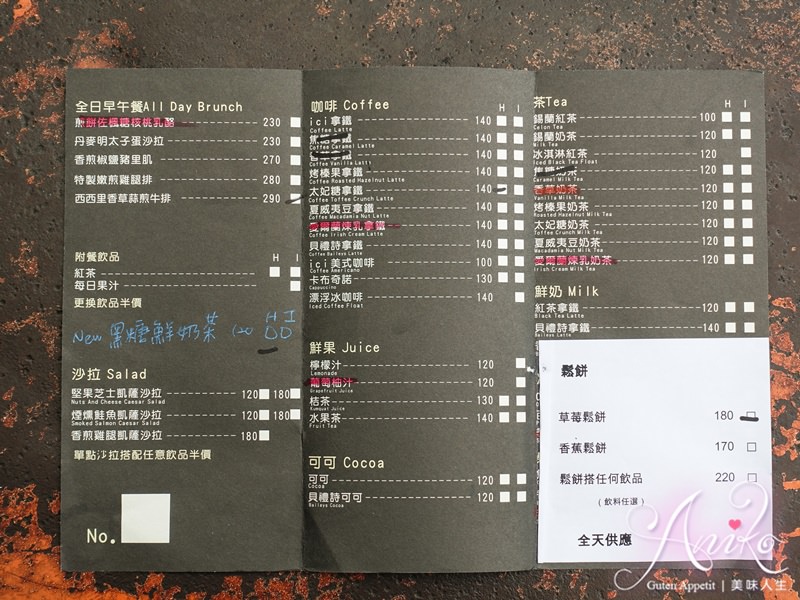 全日早午餐All Day Brunch
煎餅佐楓糖核桃乳酪 230
丹麥明太子蛋沙拉 230
香煎椒鹽豬里肌 270
特製嫩煎雞腿排 280
西西里香草蒜煎牛排 290
附餐飲品 H I
紅茶
每日果汁
更換飲品半價
New 黑糖鮮奶茶 120 H I
沙拉 Salad
堅果芝士凱薩沙拉 120 180
Nuts And Cheese Caesar Salad
煙燻鮭魚凱薩沙拉 120 180
Smoked Salmon Caesar Salad
香煎雞腿凱薩沙拉 180
單點沙拉搭配任意飲品半價
No.
咖啡 Coffee H I
ici拿鐵 140
Coffee Latte
焦糖拿鐵 140
Coffee Caramel Latte
拿鐵 140
Coffee Vanilla Latte
烤榛果拿鐵 140
Coffee Roasted Hazelnut Latte
太妃糖拿鐵 140
Coffee Toffee Crunch Latte
夏威夷豆拿鐵 140
Coffee Macadamia Nut Latte
愛爾蘭煉乳拿鐵 140
Coffee Irish Cream Latte
貝禮詩拿鐵 140
Coffee Baileys Latte
ici美式咖啡 100
Coffee Americano
卡布奇諾 130
Cappuccino
漂浮冰咖啡 140
Iced Coffee Float
鮮果 Juice
檸檬汁 120
Lemonade
葡萄柚汁 120
Grapefruit Juice
桔茶 130
Kumquat Juice
水果茶 140
Fruit Tea
可可 Cocoa
可可 120
Cocoa
貝禮詩可可 120
Baileys Cocoa
茶Tea H I
錫蘭紅茶 100
Celon Tea
錫蘭奶茶 120
Milk Tea
冰淇淋紅茶 120
Iced Black Tea Float
奶茶 120
Caramel Milk Tea
香草奶茶 120
Vanilla Milk Tea
烤榛果奶茶 120
Roasted Hazelnut Milk Tea
太妃糖奶茶 120
Toffee Crunch Milk Tea
夏威夷豆奶茶 120
Macadamia Nut Milk Tea
愛爾蘭煉乳奶茶 120
Irish Cream Milk Tea
鮮奶 Milk
紅茶拿鐵 120
Black Tea Latte
貝禮詩拿鐵 140
鬆餅
草莓鬆餅 180
香蕉鬆餅 170
鬆餅搭任何飲品 220
(飲料任選)
全天供應
Aniko
Guten Appetit | 美味人生